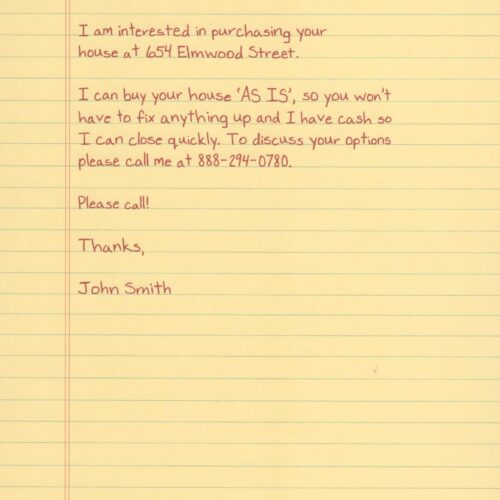 I am interested in purchasing your
house at 654 Elmwood Street.
I can buy your house 'AS IS', so you won't
have to fix anything up and I have cash so
I can close quickly. To discuss your options
please call me at 888-294-0780.
Please call!
Thanks,
John Smith